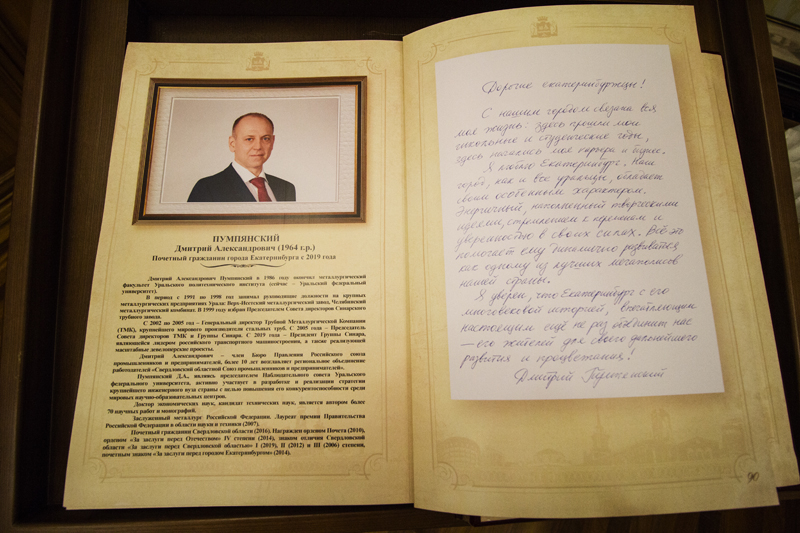 ПУМПЯНСКИЙ
Дмитрий Александрович (1964 г.р.)
Почетный гражданин города Екатеринбурга с 2019 года
Дмитрий Александрович Пумпянский в 1986 году окончил металлургический
факультет Уральского политехнического института (сейчас – Уральский федеральный
университет).
В период с 1991 по 1998 год занимал руководящие должности на крупных
металлургических предприятиях Урала: Верх-Исетский металлургический завод, Челябинский
металлургический комбинат. В 1999 году избран Председателем Совета директоров Синарского
трубного завода.
С 2002 по 2005 год – Генеральный директор Трубной Металлургической Компании
(ТМК), крупнейшего мирового производителя стальных труб. С 2005 года – Председатель
Совета директоров ТМК и Группы Синара. С 2019 года – Президент Группы Синара,
являющейся лидером российского транспортного машиностроения, а также реализующей
масштабные девелоперские проекты.
Дмитрий Александрович – член Бюро Правления Российского союза
промышленников и предпринимателей, более 10 лет возглавляет региональное объединение
работодателей «Свердловский областной Союз промышленников и предпринимателей».
Пумпянский Д.А., являясь председателем Наблюдательного совета Уральского
федерального университета, активно участвует в разработке и реализации стратегии
крупнейшего инженерного вуза страны с целью повышения его конкурентоспособности среди
мировых научно-образовательных центров.
Доктор экономических наук, кандидат технических наук, является автором более
70 научных работ и монографий.
Заслуженный металлург Российской Федерации. Лауреат премии Правительства
Российской Федерации в области науки и техники (2007).
Почетный гражданин Свердловской области (2016). Награжден орденом Почета (2010),
орденом «За заслуги перед Отечеством» IV степени (2014), знаком отличия Свердловской
области «За заслуги перед Свердловской областью» I (2019), II (2012) и III (2006) степени,
почетным знаком «За заслуги перед городом Екатеринбургом» (2014).
Дорогие екатеринбуржцы!
С нашим городом связана вся
моя жизнь: здесь прошли мои
школьные и студенческие годы,
здесь началась моя карьера и бизнес.
Я люблю Екатеринбург. Наш
город, как и все уральцы, обладает
своим особенным характером.
Энергичный, наполненный творческими
идеями, стремлением к переменам и
уверенностью в своих силах. Всё это
помогает ему динамично развиваться
как одному из лучших мегаполисов
нашей страны.
Я уверен, что Екатеринбург с его
многовековой историей, впечатляющим
настоящим ещё не раз объединит нас
– его жителей для своего дальнейшего
развития и процветания!
Дмитрий Пумпянский
90